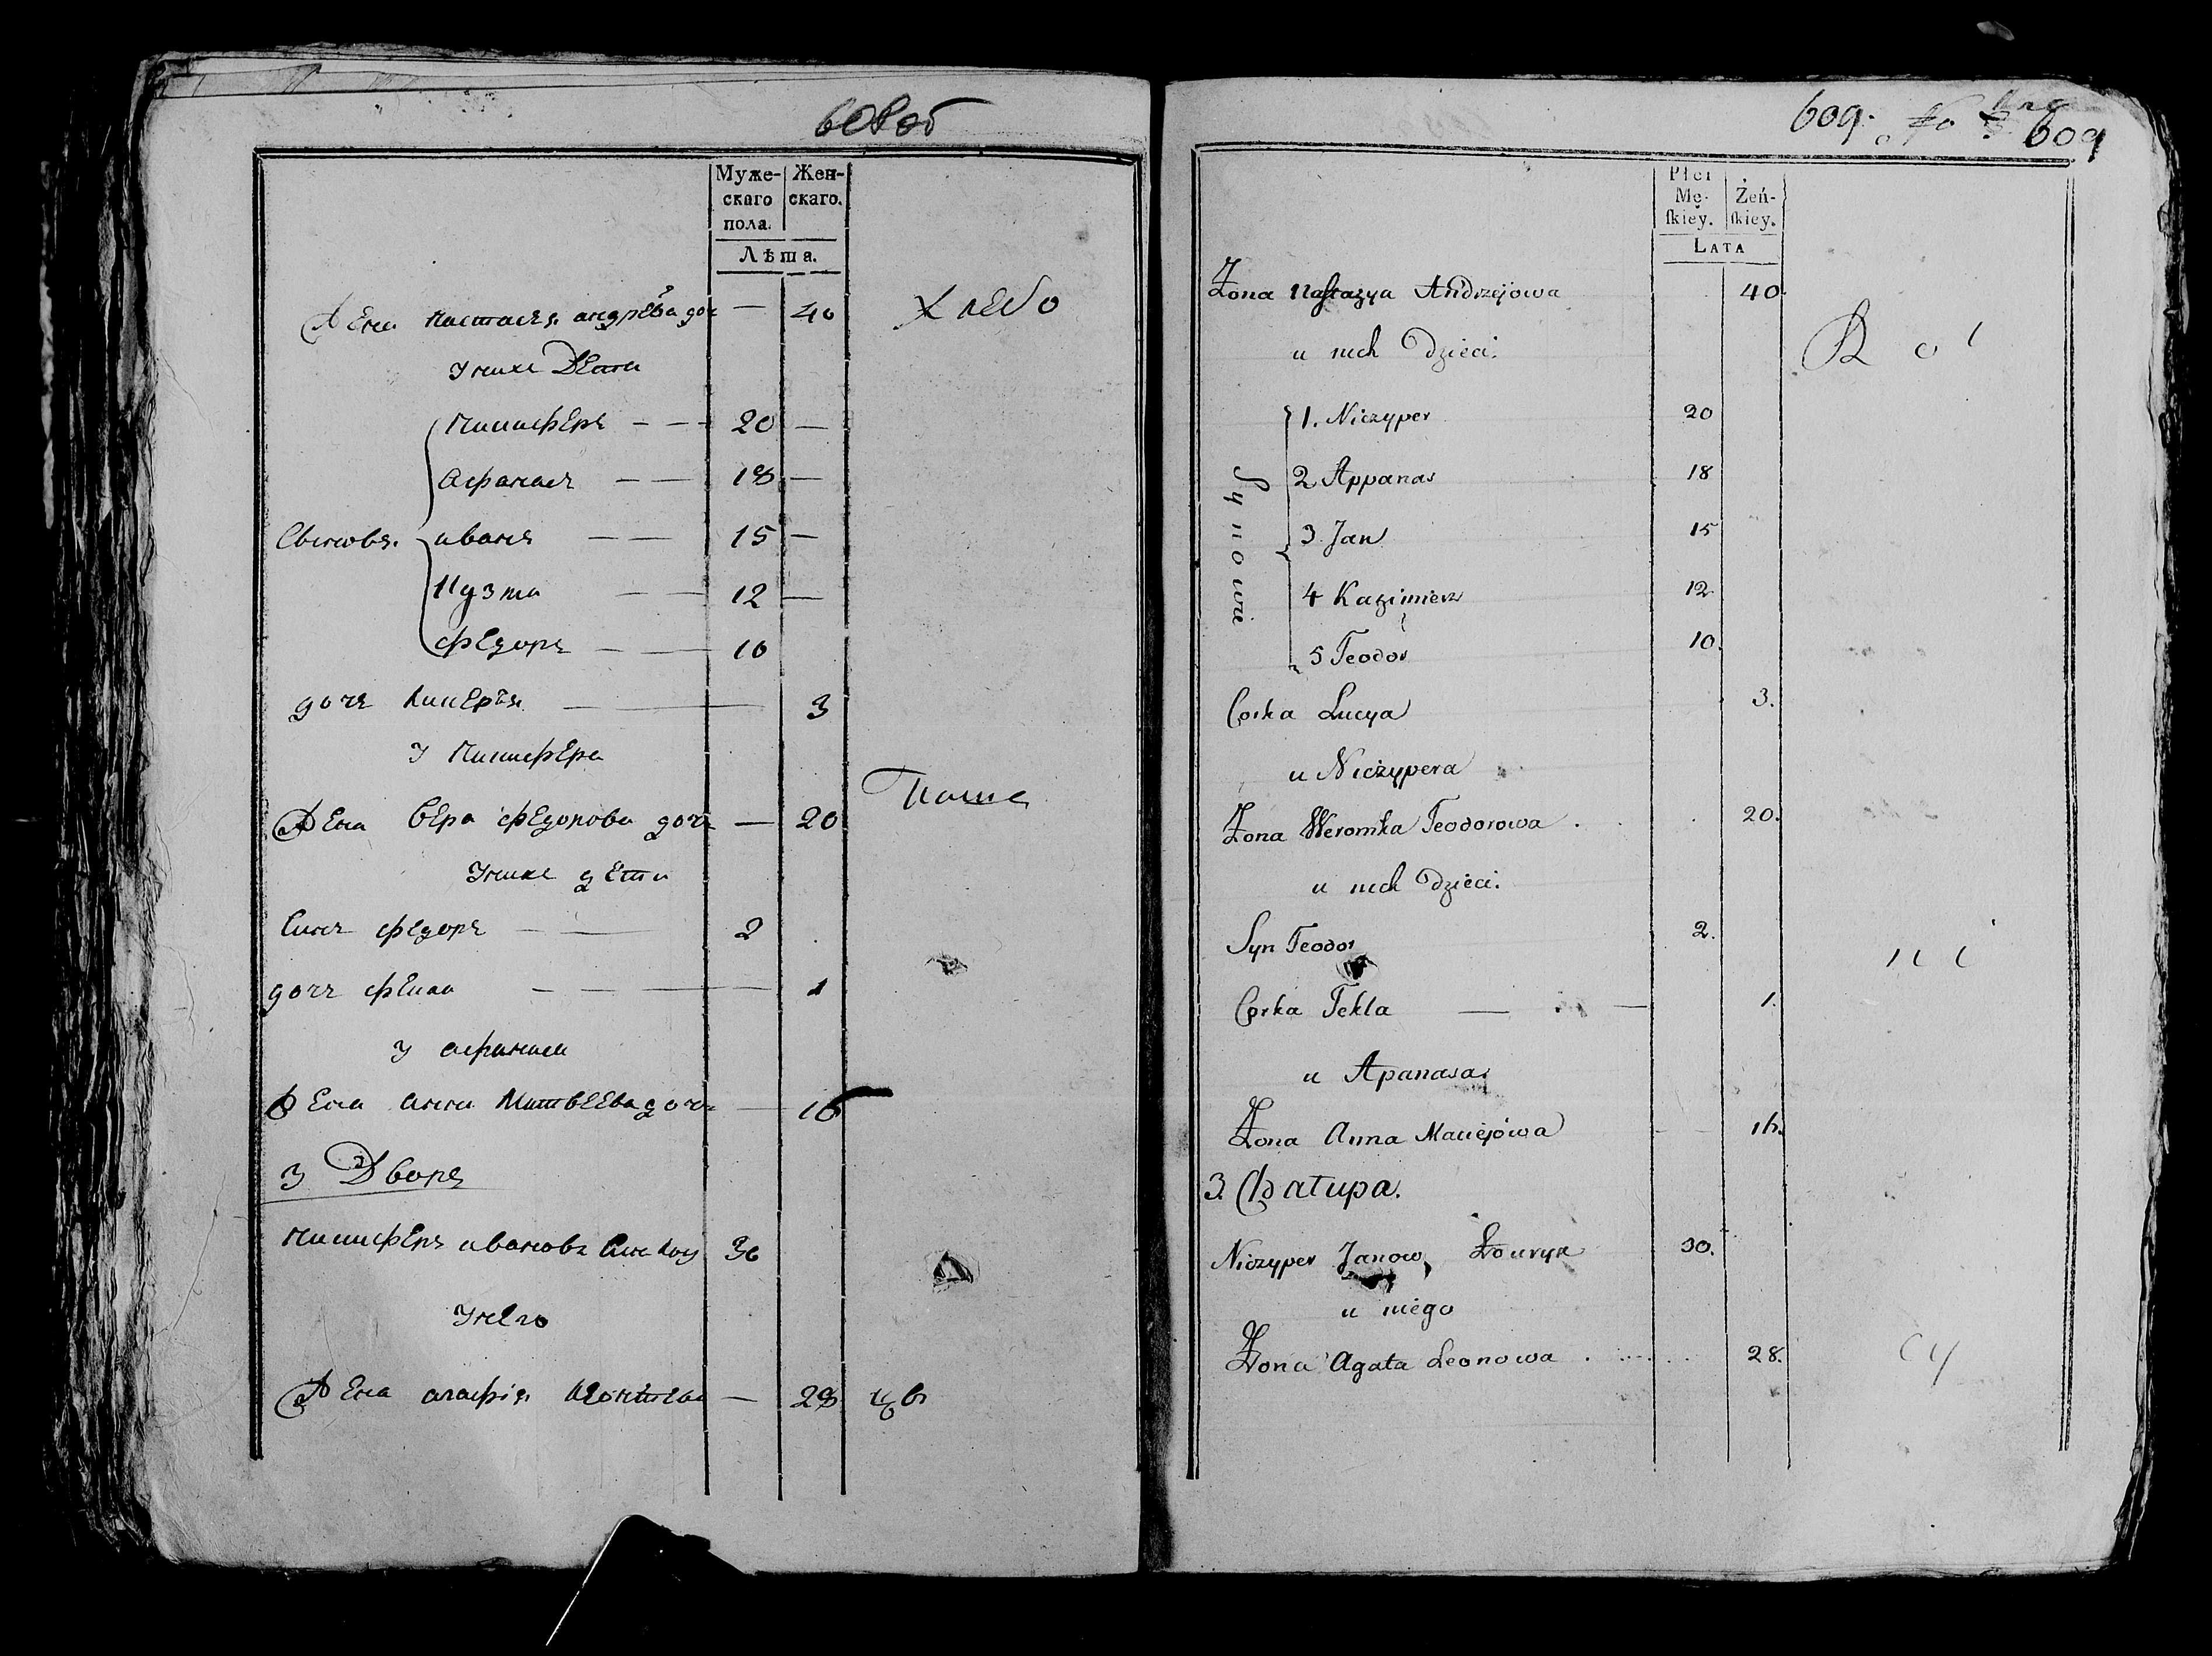 608 об
Муже- Жен-
скаго скаго.
пола.
Лѣта.
Жена настасья андрѣва доч — 40 хлебо
У нихъ Дети
Никиферъ — — 20 —
Афанасъ — — 18 —
Сыновья иванъ — — 15 —
Кузма — — 12 —
Федоръ — — 10
дочь Лукерья — 3
У Никифера
Жена Вера Федорова дочь — 20 паше
У нихъ дети
Синъ Федоръ — — 2
дочь Фекла — — 1
У афанаса
Жена анна Матвеева дочь — 16
3 Дворъ
Никиферъ ивановъ Синъ 30
У него
Жена агафія Леонтева — 28
609. No 609
Płci
Mę- Żeń-
skiey. skiey.
LATA
Żona Nastazya Andrzejowa 40
u nich Dzieci.
Synowie
1. Niczyper 20
2 Appanas 18
3 Jan 15
4 Kazimierz 12
5 Teodor 10.
Corka Lucya 3.
u Niczypera
Żona Weronika Teodorowa 20.
u nich Dzieci.
Syn Teodor 2.
Corka Tekla — 1.
u Apanasa
Żona Anna Maciejowa 16.
3. Chatupa.
Niczyper Janow 30.
u niego
Żona Agata Leonowa 28.